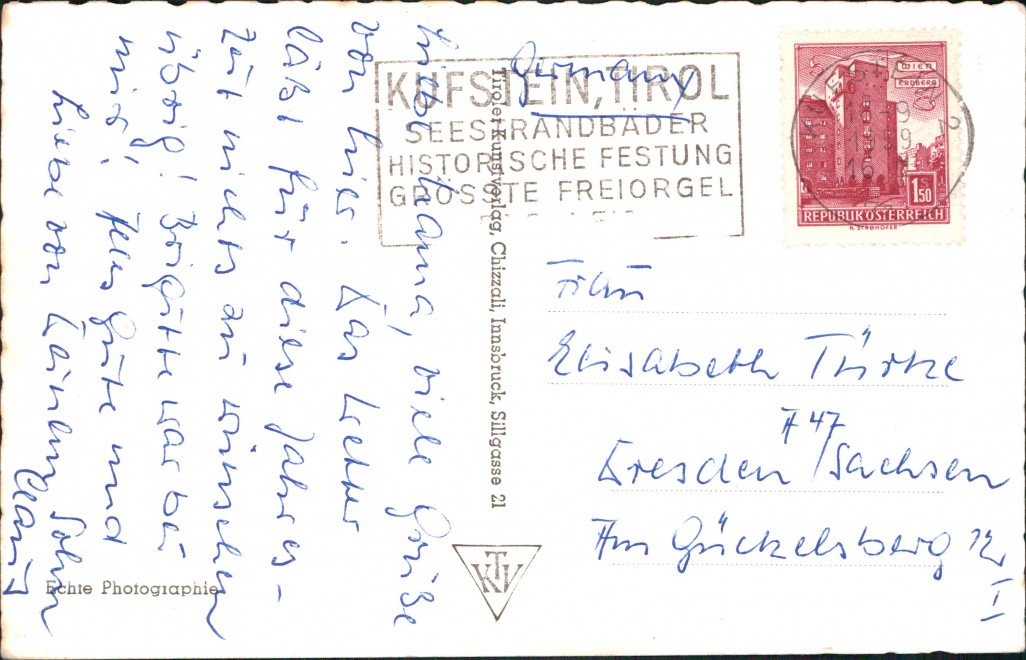 Liebe Mama, viele Grüße
von hier. Das Wetter
läßt für diese Jahres-
zeit nichts zu wünschen
übrig! Brigitte war bei
mir! Alles Gute und
Liebe von Deinem Sohn
Claus
Germany
KUFSTEIN, TIROL
SEESTRANDBÄDER
HISTORISCHE FESTUNG
GRÖSSTE FREIORGEL
WIEN
ERDBERG
1 50
REPUBLIK ÖSTERREICH
H. STROHOFER
Tiroler Kunstverlag, Chizzali, Innsbruck, Sillgasse 21
Frau
Elisabeth Türke
A 47
Dresden/Sachsen
Am Gückelsberg 12
I
KTV
Echte Photographie